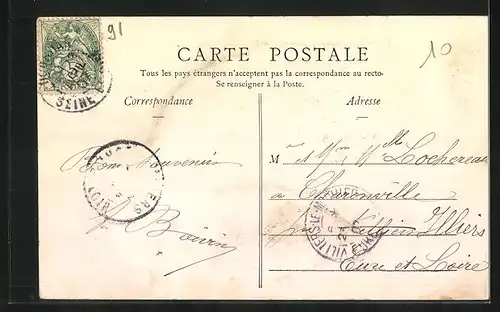 91
10
CARTE POSTALE
Tous les pays étrangers n'acceptent pas la correspondance au recto.
Se renseigner à la Poste.
Correspondance
Adresse
SEINE
Bon Souvenir
P. Boivin
M et Mme Lochereau
à Charonville
par Villiers Illiers
Eure et Loire
VILLIERS-LE-M